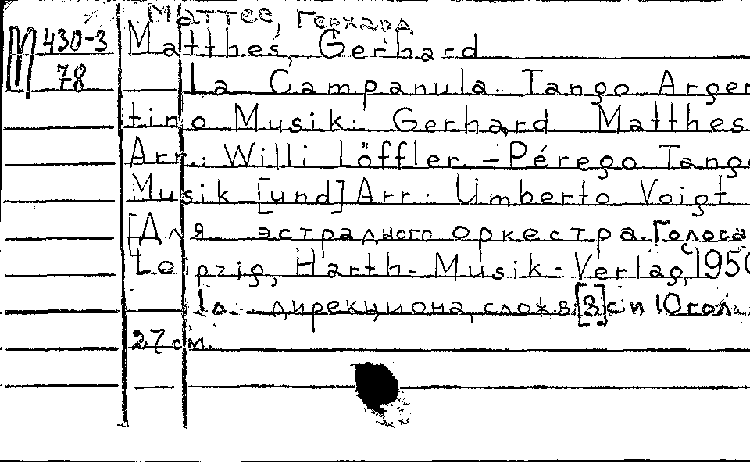 Маттес, Герхард
М 430-3
78
Matthes, Gerhard
La Campanula. Tango Argen
tino Musik: Gerhard Matthes
Arr.: Willi Löffler. – Pérego Tango
Musik [und] Arr.: Umberto Voigt
[Для эстрадного оркестра. Голоса
Leipzig, Harth-Musik-Verlag, 1950
дирекциона, слож. в [3] с и 10 гол.
27 см.